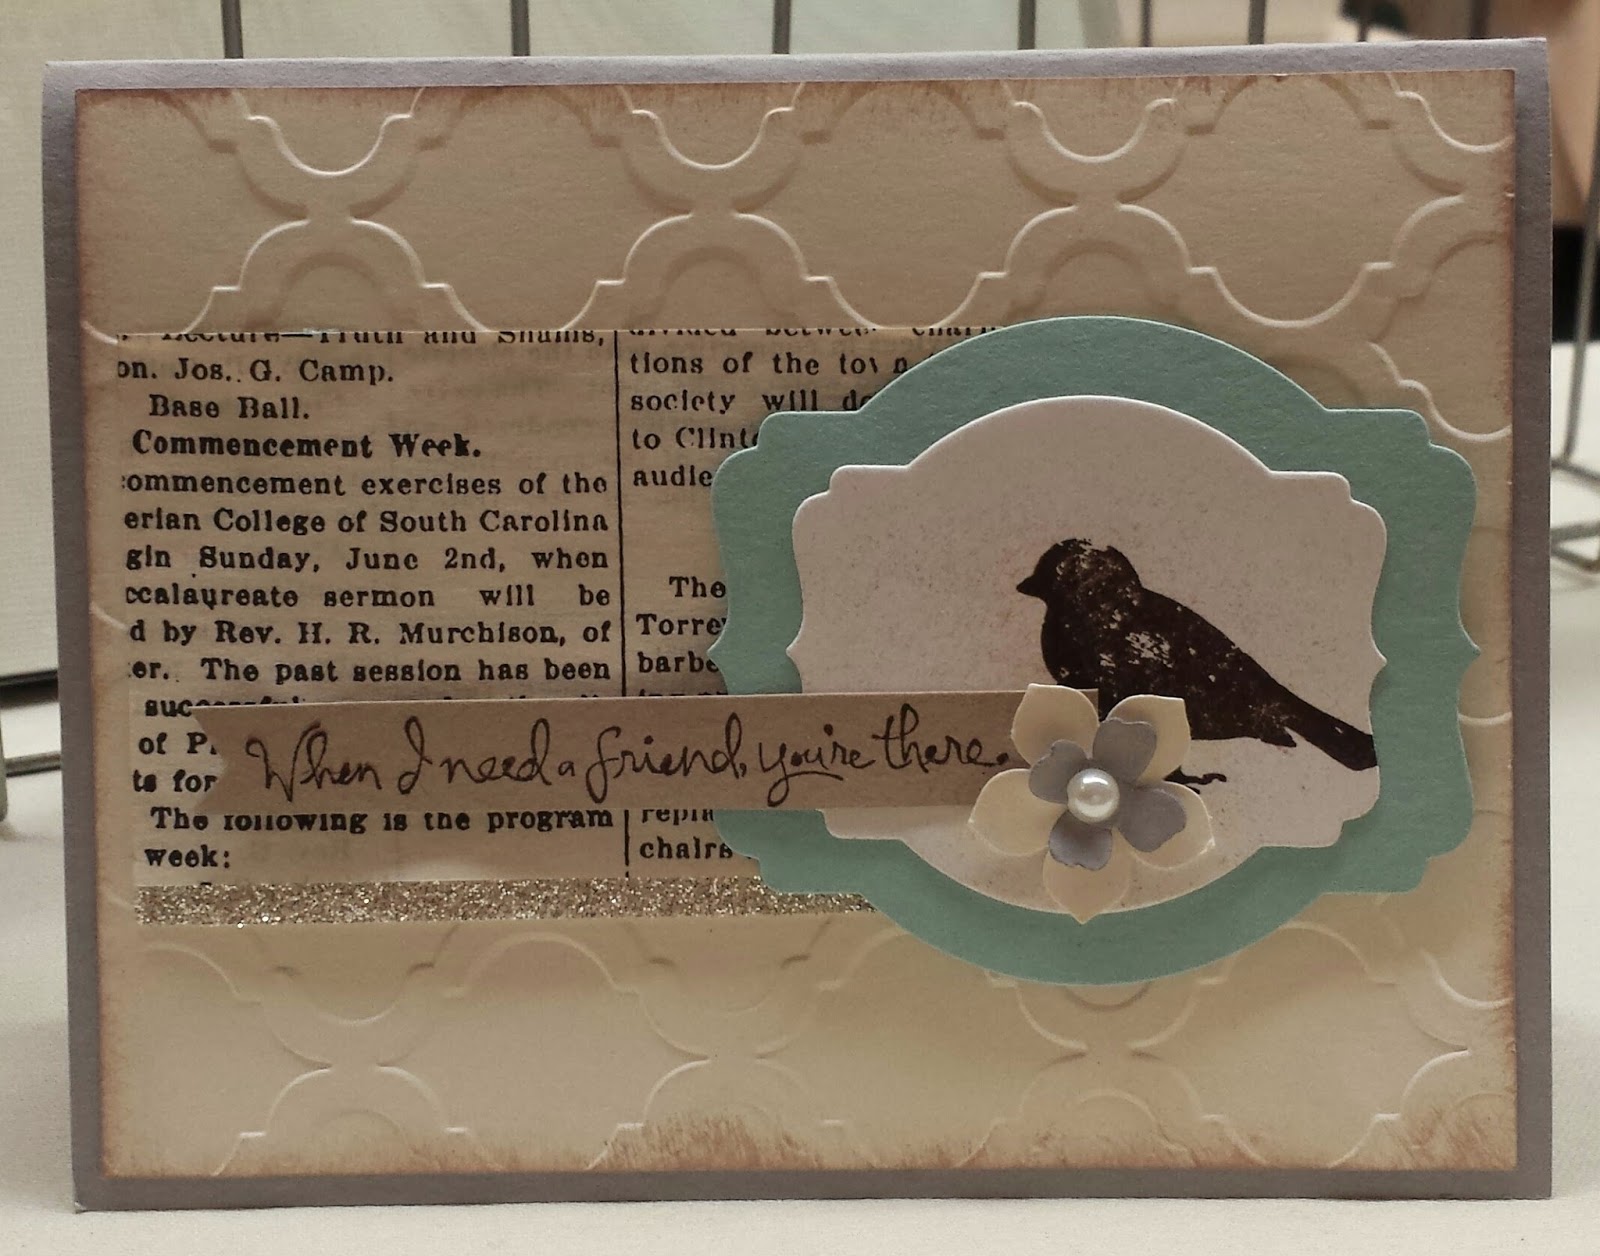 Lecture—Truth and Shams,
on. Jos. G. Camp.
Base Ball.
Commencement Week.
ommencement exercises of the
erian College of South Carolina
gin Sunday, June 2nd, when
ccalaureate sermon will be
d by Rev. H. R. Murchison, of
er. The past session has been
suc
of P
ts for
The following is the program
week:
divided between
tions of the town
society will
to Clinto
audie
The
Torre
barbe
chairs
When I need a friend, you're there.